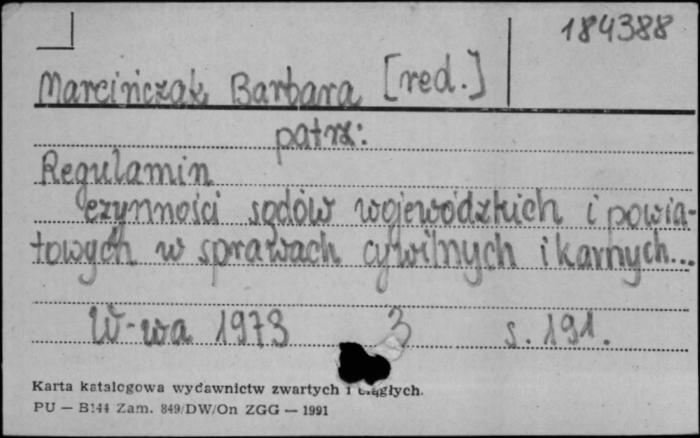 184388
Marcińczak Barbara [red.]
patrz:
Regulamin
czynności sądów wojewódzkich i powia-
towych w sprawach cywilnych i karnych...
W-wa 1973 3 s. 191.
Karta katalogowa wydawnictw zwartych i ciągłych.
PU — B144 Zam. 849/DW/On ZGG — 1991